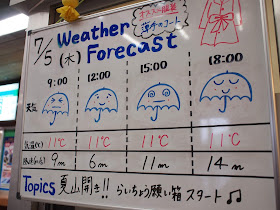 7/5(木) Weather Forecast
オススメ服装
薄手のコート
9:00 12:00 15:00 18:00
天気
気温(℃) 11℃ 11℃ 11℃ 11℃
9m 6m 11m 14m
Topics 夏山開き!! らいちょう願い箱 スタート♫